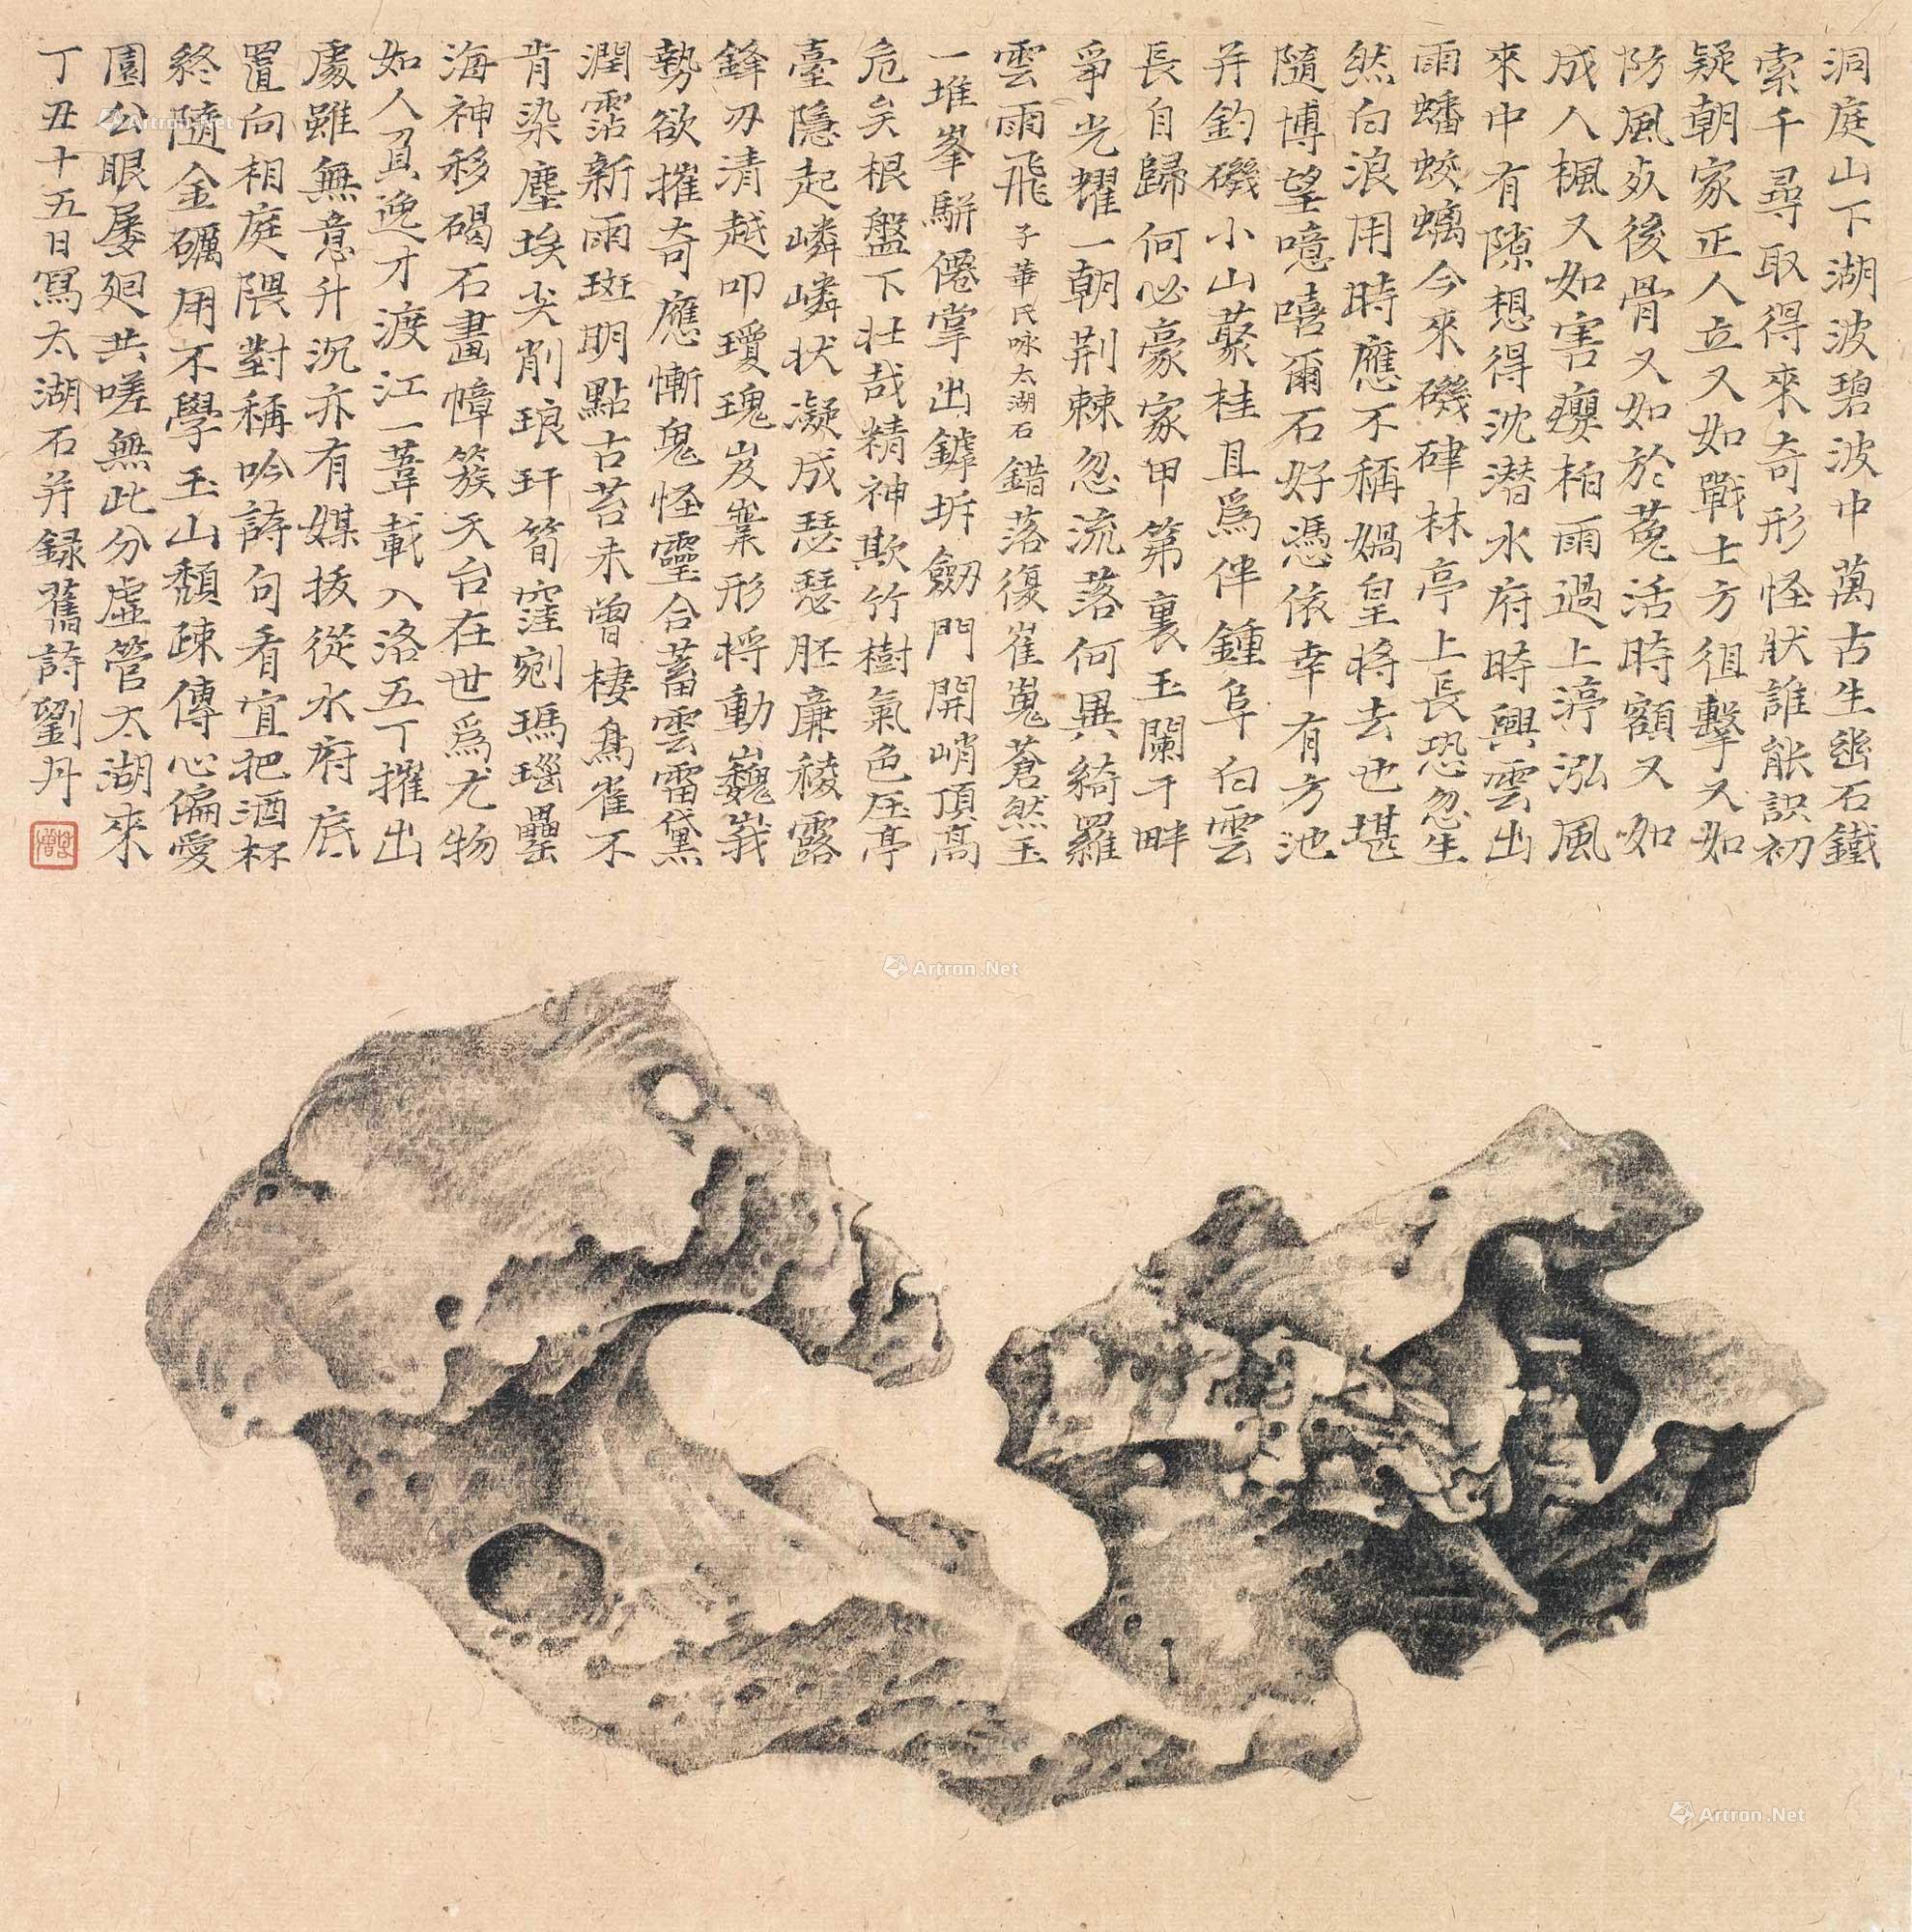 洞庭山下湖波碧波中萬古生幽石鐵
索千尋取得來奇形怪狀誰能識初
疑朝家正人立又如戰士方徂擊又如
防風死後骨又如於菟活時額又如
成人楓又如害癭柏雨過上渟泓風
來中有隙想得沈潜水府時興雲出
雨蟠蛟螭今來磯硉林亭上長恐忽生
然白浪用時應不稱媧皇將去也堪
隨博望噫嘻爾石好憑依幸有方池
并釣磯小山叢桂且爲伴鍾阜白雲
長自歸何必豪家甲第裏玉闌干畔
爭光耀一朝荆棘忽流落何異綺羅
雲雨飛 子華氏咏太湖石 錯落復崔嵬蒼然玉
一堆峯駢僊掌出罅坼劒門開峭頂高
危矣根盤下壯哉精神欺竹樹氣色压亭
臺隱起嶙嶙状凝成瑟瑟胚廉稜露
鋒刃清越叩瓊瑰岌嶪形将動巍峩
勢欲摧奇應慚鬼怪靈合蓄雲雷黛
潤霑新雨斑明點古苔未曾棲鳥雀不
肯染塵埃尖削琅玕筍窪剜瑪瑙罍
海神移碣石畫幛簇天台在世爲尤物
如人負逸才渡江一葦載入洛五丁摧出
處雖無意升沉亦有媒拔從水府底
置向相庭隈對稱吟詩句看宜把酒杯
終隨金礪用不學玉山頽疎傳心偏愛
園公眼屡廻共嗟無此分虚管太湖來
丁丑十五日寫太湖石并録舊詩劉丹
Artron.Net
Artron.Net
Artron.Net